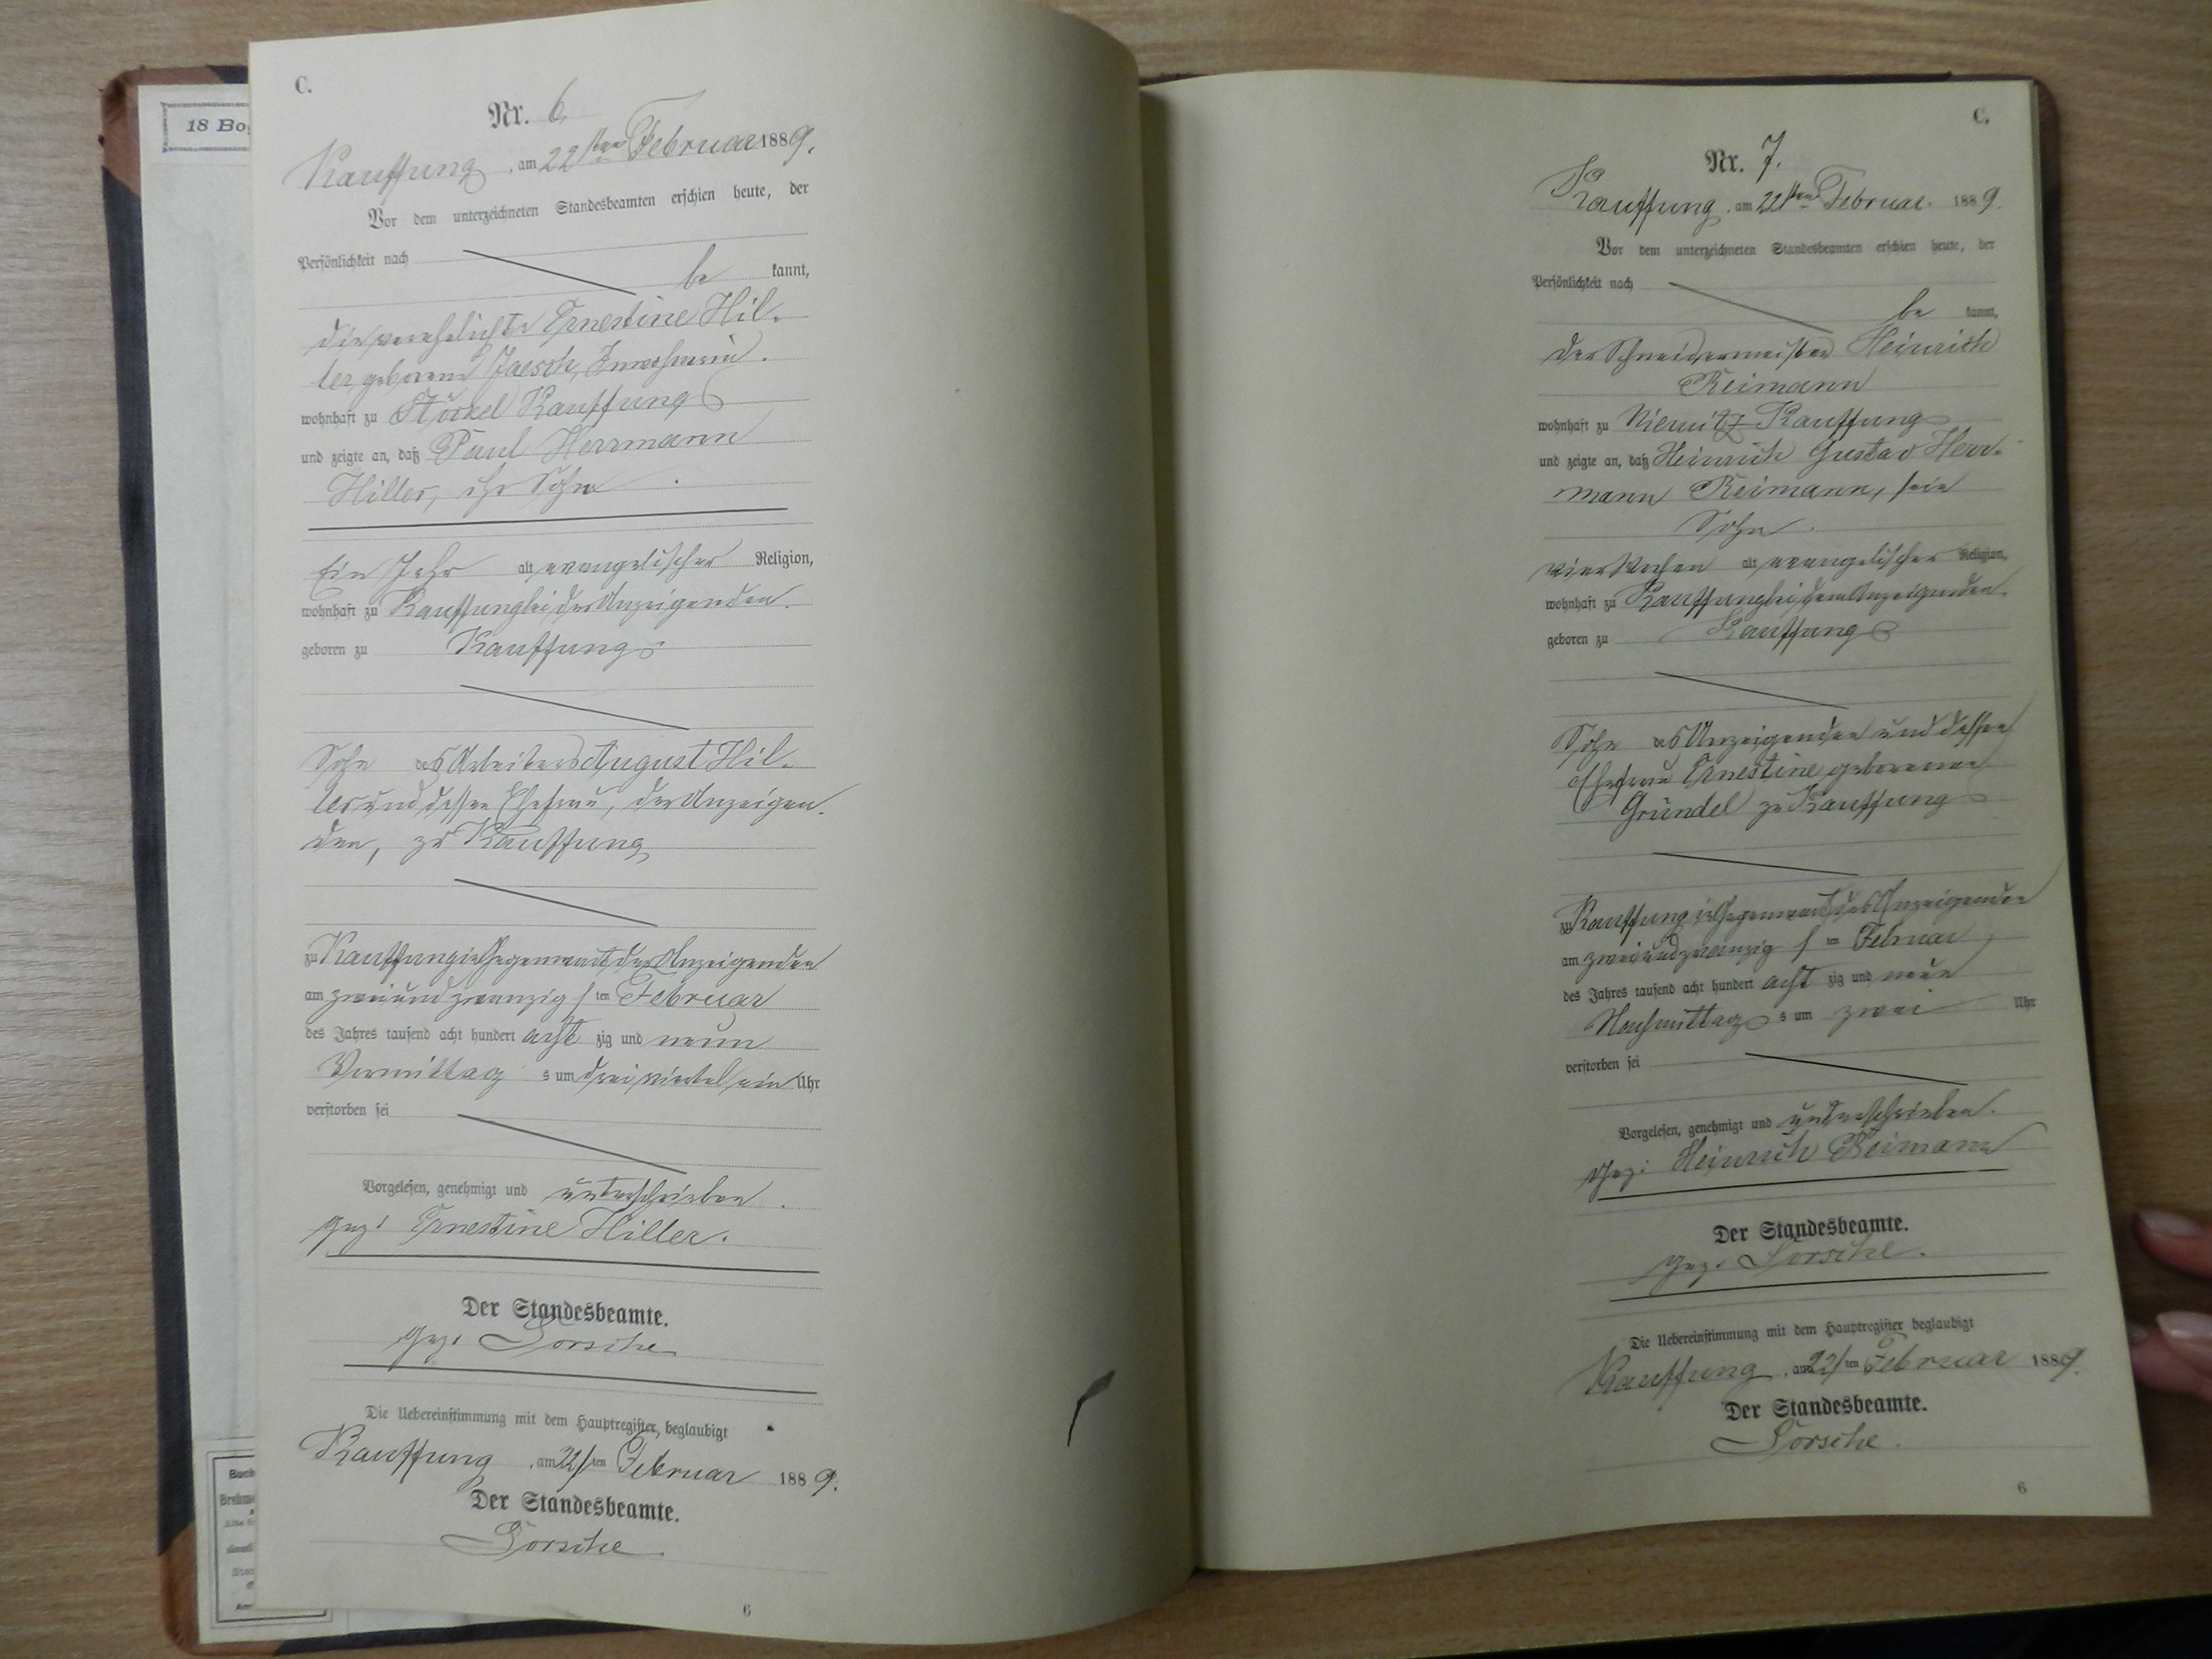 18 Bog
C.
Nr. 6
Kauffung, am 22ten Februar 1889.
Vor dem unterzeichneten Standesbeamten erschien heute, der
Persönlichkeit nach
be kannt,
die verehelichte Ernestine Hil-
ler, geborene Jaesch, Inwohnerin.
wohnhaft zu Stöckel Kauffung
und zeigte an, daß Paul Herrmann
Hiller, ihr Sohn
Ein Jahr alt, evangelischer Religion,
wohnhaft zu Kauffung bei der Anzeigenden.
geboren zu Kauffung
Sohn des Arbeiters August Hil-
ler und dessen Ehefrau, der Anzeigen-
den, zu Kauffung
zu Kauffung in Gegenwart der Anzeigenden
am zweiundzwanzigsten Februar
des Jahres tausend acht hundert acht zig und neun
Vormittag s um drei viertel ein Uhr
verstorben sei
Vorgelesen, genehmigt und unterschrieben.
gez: Ernestine Hiller.
Der Standesbeamte.
gez.
Die Uebereinstimmung mit dem Hauptregister beglaubigt
Kauffung, am 22ten Februar 1889.
Der Standesbeamte.
6
C.
Nr. 7.
Kauffung, am 22ten Februar 1889.
Vor dem unterzeichneten Standesbeamten erschien heute, der
Persönlichkeit nach
be kannt,
der Schneidermeister Heinrich
Reimann
wohnhaft zu Niemitz Kauffung
und zeigte an, daß Heinrich Gustav Herr-
mann Reimann, sein
Sohn.
vier Wochen alt, evangelischer Religion,
wohnhaft zu Kauffung bei dem Anzeigenden.
geboren zu Kauffung
Sohn des Anzeigenden und dessen
Ehefrau Ernestine geborenen
Gründel zu Kauffung
zu Kauffung in Gegenwart des Anzeigenden
am zweiundzwanzigsten Februar
des Jahres tausend acht hundert acht zig und neun
Nachmittag s um zwei Uhr
verstorben sei
Vorgelesen, genehmigt und unterschrieben.
gez: Heinrich Reimann
Der Standesbeamte.
gez.
Die Uebereinstimmung mit dem Hauptregister beglaubigt
Kauffung, am 22ten Februar 1889.
Der Standesbeamte.
6